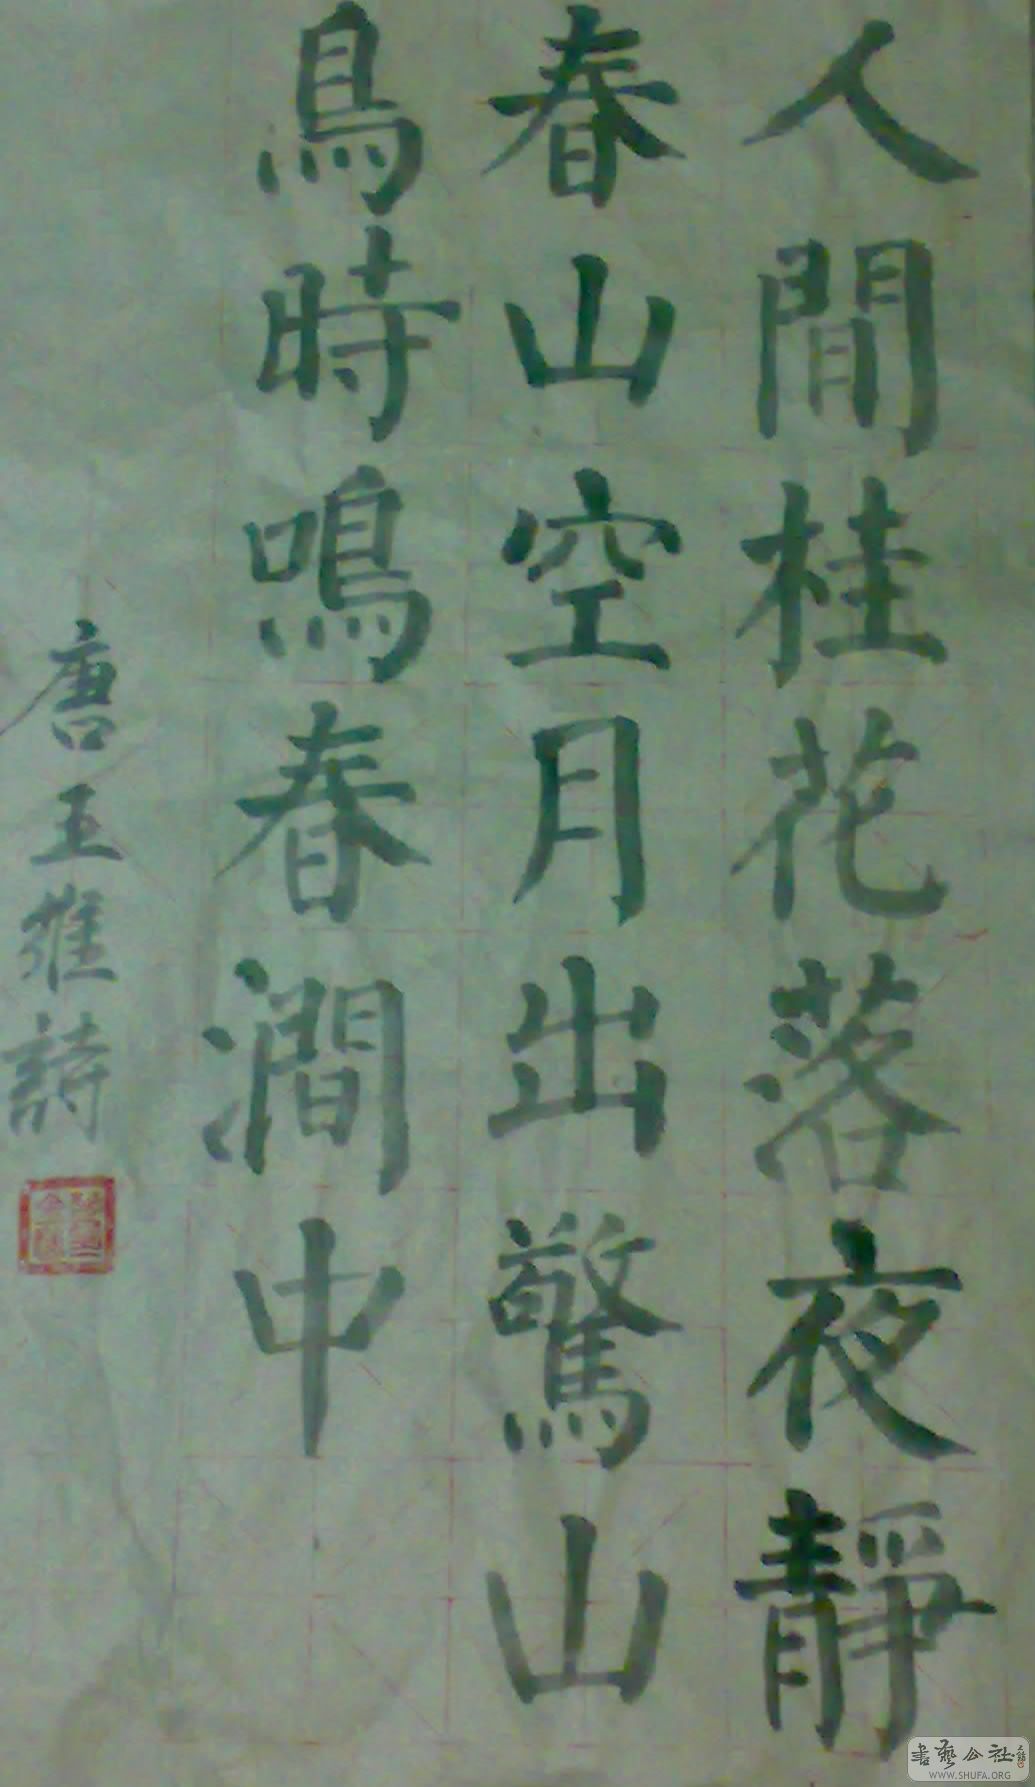 人間桂花落夜靜
春山空月出驚山
鳥時鳴春澗中
唐王維詩
書藝公社
WWW.SHUFA.ORG